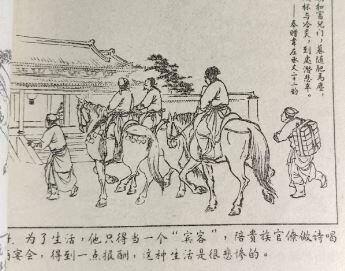 扣富兒门，暮随肥马塵，
杯与冷炙，到处潜悲辛。
——奉赠韦左丞丈二十二韵
为了生活，他只得当一个“宾客”，陪贵族官僚做诗喝
宴会，得到一点报酬，这种生活是很悲惨的。